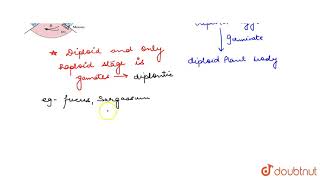 germinate
* Diploid and only
haploid stage is
gametes → diplontic
diploid Plant body
eg- fucus, Sargassum
doubtnut